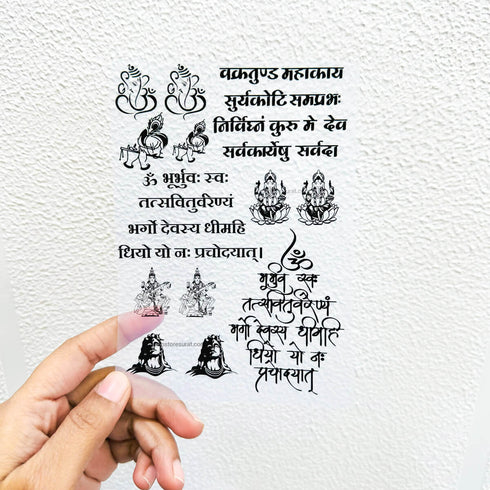 वक्रतुण्ड महाकाय
सुर्यकोटि समप्रभः
निर्विघ्नं कुरु मे देव
सर्वकार्येषु सर्वदा
ॐ भूर्भुवः स्वः
तत्सवितुर्वरेण्यं
भर्गो देवस्य धीमहि
धियो यो नः प्रचोदयात्।
ॐ
भूर्भुव स्वः
तत्सवितुर्वरेण्यं
भर्गो देवस्य धीमहि
धियो यो नः
प्रचोदयात्